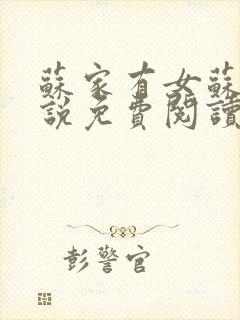 蘇家有女蘇
說免費閱讀
彭警官